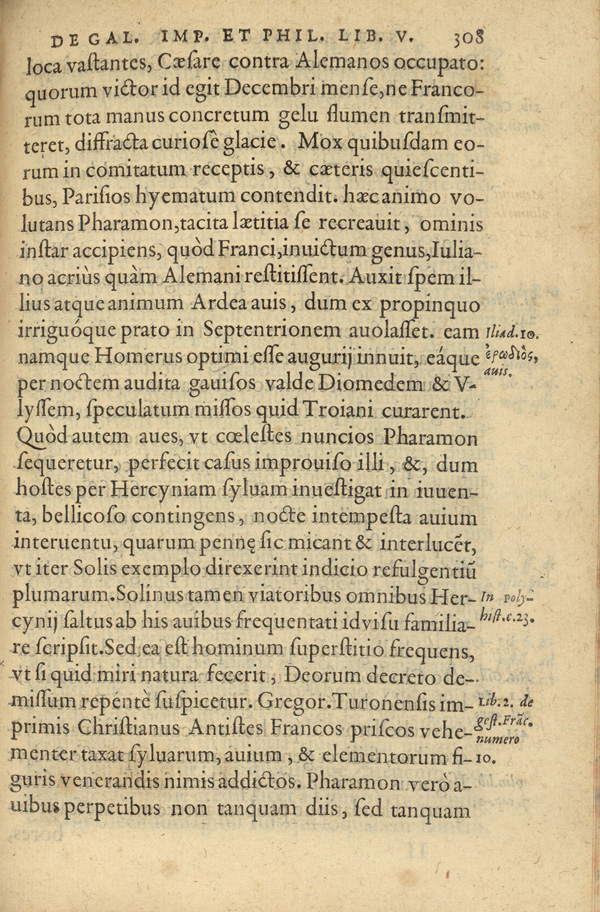 DE GAL. IMP. ET PHIL. LIB. V. 308
loca vaſtantes, Cæſare contra Alemanos occupato:
quorum victor id egit Decembri menſe, ne Franco-
rum tota manus concretum gelu flumen tranſmit-
teret, diffracta curioſè glacie. Mox quibuſdam eo-
rum in comitatum receptis, & cæteris quieſcenti-
bus, Pariſios hyematum contendit. hæc animo vo-
lutans Pharamon, tacita lætitia ſe recreauit, ominis
inſtar accipiens, quòd Franci, inuictum genus, Iulia-
no acriùs quàm Alemani reſtitiſſent. Auxit ſpem il-
lius atque animum Ardea auis, dum ex propinquo
irriguóque prato in Septentrionem auolaſſet. eam
Iliad. 10.
namque Homerus optimi eſſe augurij innuit, eáque
ἐρωδιὸς,
auis.
per noctem audita gauiſos valde Diomedem & V-
lyſſem, ſpeculatum miſſos quid Troiani curarent.
Quòd autem aues, vt cœleſtes nuncios Pharamon
ſequeretur, perfecit caſus improuiſo illi, &, dum
hoſtes per Hercyniam ſyluam inueſtigat in iuuen-
ta, bellicoſo contingens, nocte intempeſta auium
interuentu, quarum pennę ſic micant & interlucẽt,
vt iter Solis exemplo direxerint indicio refulgentiũ
plumarum. Solinus tamen viatoribus omnibus Her-
In poly-
hiſt. c. 23.
cynij ſaltus ab his auibus frequentati id viſu familia-
re ſcripſit. Sed ea eſt hominum ſuperſtitio frequens,
vt ſi quid miri natura fecerit, Deorum decreto de-
miſſum repentè ſuſpicetur. Gregor. Turonenſis im-
Lib. 2. de
geſt. Frāc.
numero
10.
primis Chriſtianus Antiſtes Francos priſcos vehe-
menter taxat ſyluarum, auium, & elementorum fi-
guris venerandis nimis addictos. Pharamon verò a-
uibus perpetibus non tanquam diis, ſed tanquam